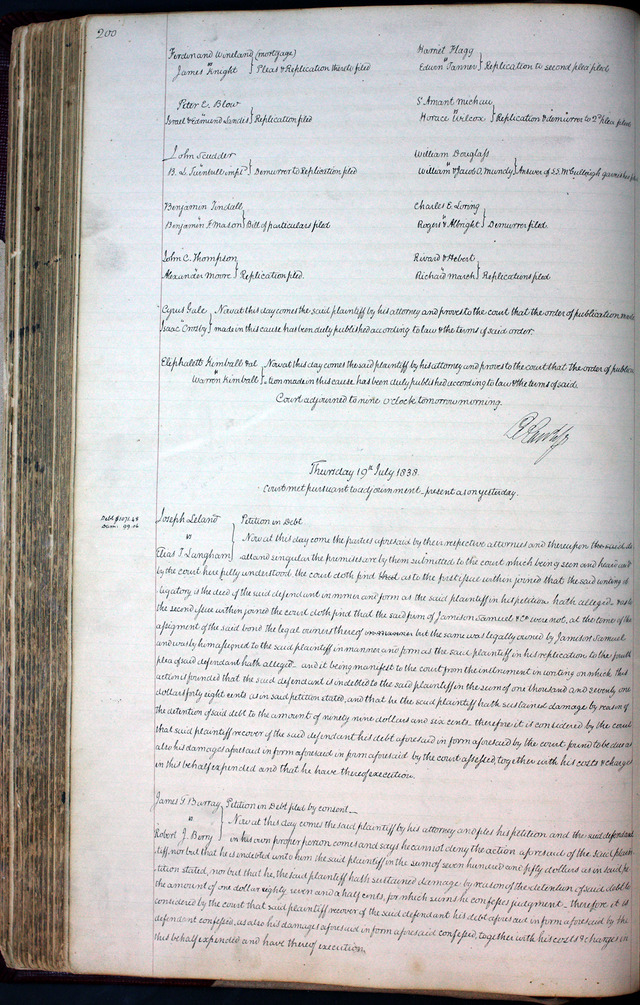 200
Ferdinand Wineland (mortgage)
vs
James Knight } Pleas & Replication thereto filed
Harriet Flagg
vs
Edwin Tanner } Replication to second plea filed
Peter C. Blow
vs
Israel & Edmund Landes } Replication filed
St Amant Michau
vs
Horace Wilcox } Replication & demurrer to 2d plea filed
John Scudder
vs
B. L. Turnbull impl } Demurrer to Replication filed
William Douglass
vs
William & David A. Mundy } Answer of S. S. McCullough garnishee
Benjamin Tindall
vs
Benjamin F. Mason } Bill of particulars filed
Charles E. Loring
vs
Rogers & Albright } Demurrer filed.
John C. Thompson
vs
Alexander Moore } Replication filed.
Rivard & Hebert
vs
Richard March } Replications filed
Cyrus Gale } Now at this day comes the said plaintiff by his attorney and proves to the court that the order of publication made
vs
Isaac Crosby } made in this cause has been duly published according to law & the terms of said order.
Eliphalett Kimball & al } Now at this day comes the said plaintiff by his attorney and proves to the court that the order of publica
vs
Warron Kimball } tion made in this cause has been duly published according to law & the terms of said.
Court adjourned to nine o'clock tomorrow morning.
Thursday 19th July 1838.
Court met pursuant to adjournment present as on yesterday.
Debt $1071.48
Dam. 99.06
Joseph Leland } Petition in Debt
vs
Now at this day come the parties aforesaid by their respective attornies and thereupon
Elias T. Langham } all and singular the premises are by them submitted to the court which being seen and heard and
by the court here fully understood, the court doth find as to the first issue within joined that the said writing ob
ligatory is the deed of the said defendant in manner and form as the said plaintiff in his petition hath alleged as to
the second issue within joined the court doth find that the said firm of Jamison Samuel & Co were not, at the time of the
assignment of the said bond the legal owners thereof but the same was legally owned by Jamison Samuel
and was by him assigned to the said plaintiff in manner and form as the said plaintiff in his replication to the fourth
plea of said defendant hath alleged and it being manifest to the court from the instrument in writing on which this
action is founded that the said defendant is indebted to the said plaintiff in the sum of one thousand and seventy one
dollars forty eight cents as in said petition stated, and that he the said plaintiff hath sustained damage by reason of
the detention of said debt to the amount of ninety nine dollars and six cents. therefore it is considered by the court
that said plaintiff recover of the said defendant his debt aforesaid in form aforesaid by the court found to be due as
also his damages aforesaid in form aforesaid in form aforesaid by the court assessed, together with his costs & charges
in this behalf expended and that he have thereof execution.
James G Barray } Petition in Debt filed by consent
vs
Now at this day comes the said plaintiff by his attorney and files his petition and the said defendant
Robert J. Berry } in his own proper person comes and says he cannot deny the action aforesaid of the said plain
tiff, nor but that he is indebted unto him the said plaintiff in the sum of seven hundred and fifty dollars as in said pe
tition stated, nor but that he, the said plaintiff hath sustained damage by reason of the detention of said debt to
the amount of one dollar eighty seven and a half cents, for which sums he confesses judgment therefore it is
considered by the court that said plaintiff recover of the said defendant his debt aforesaid in form aforesaid by the
defendant confessed, as also his damages aforesaid in form aforesaid confessed, together with his costs & charges in
this behalf expended and have thereof execution.